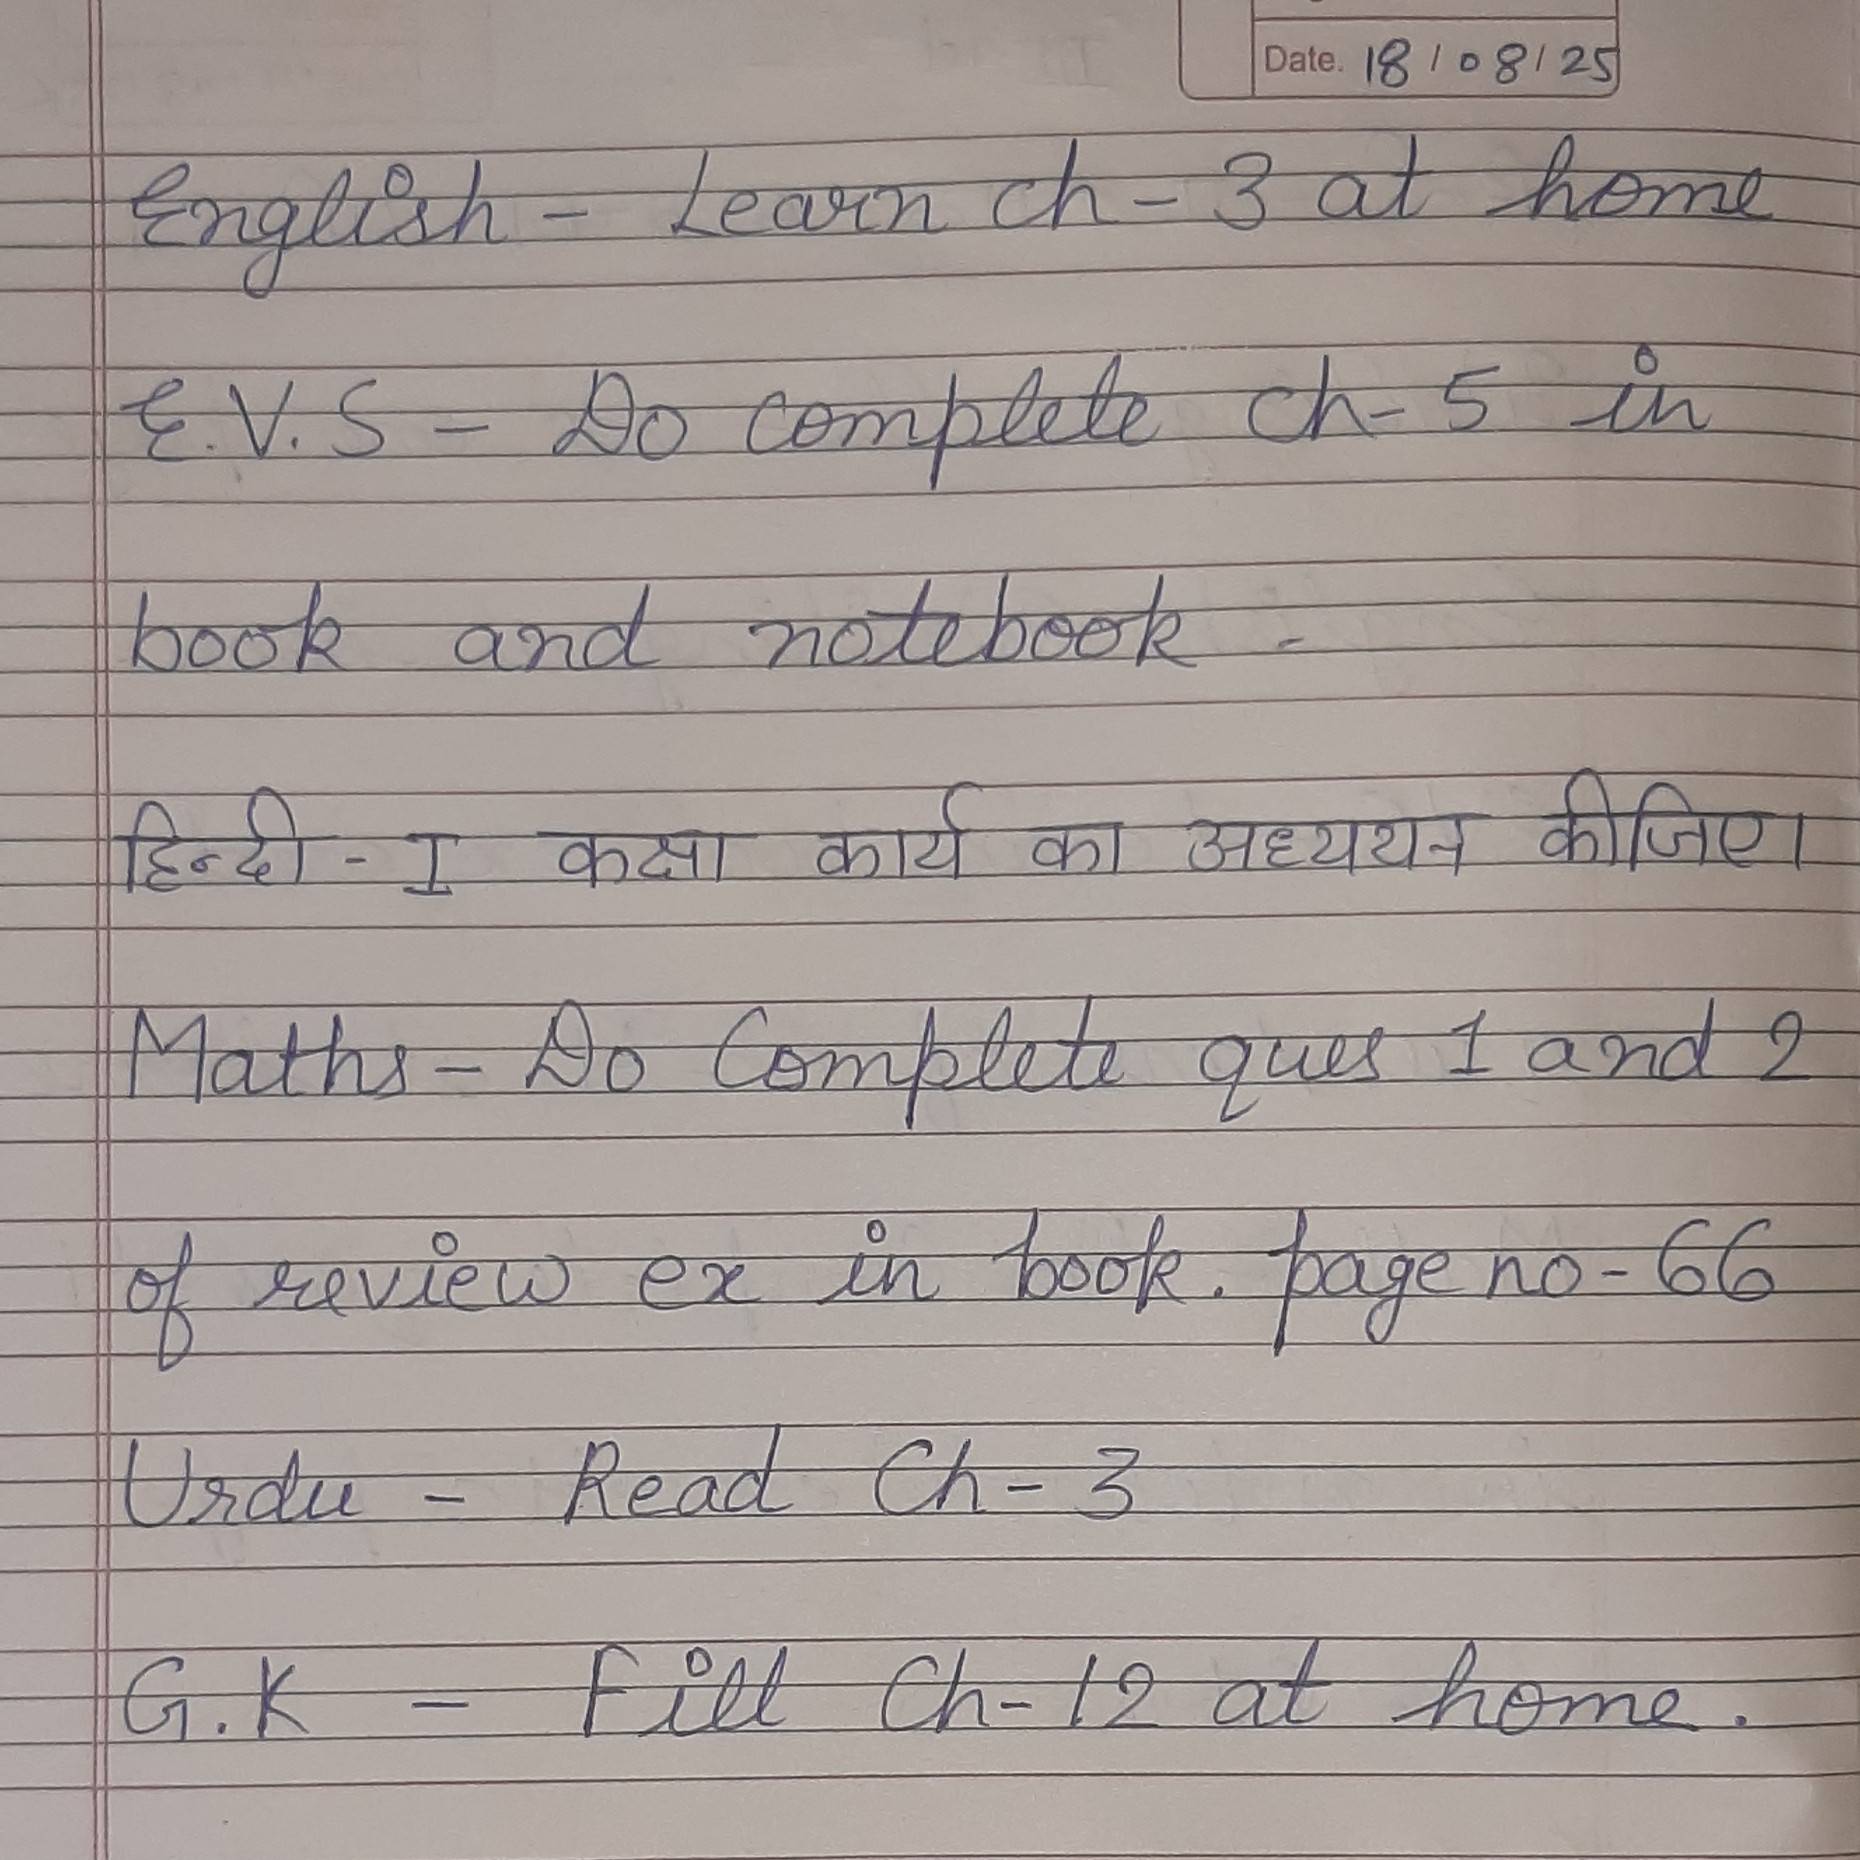 Date. 18/08/25
English - Learn ch-3 at home
E.V.S - Do complete ch-5 in
book and notebook -
हिन्दी - I कक्षा कार्य का अध्ययन कीजिए।
Maths - Do Complete ques 1 and 2
of review ex in book. page no-66
Urdu - Read Ch-3
G.K - Fill Ch-12 at home.